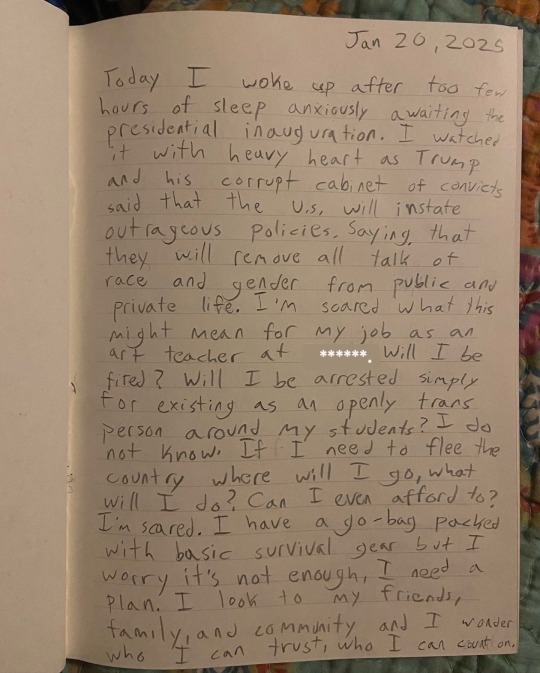 Jan 20, 2025
Today I woke up after too few
hours of sleep anxiously awaiting the
presidential inauguration. I watched
it with heavy heart as Trump
and his corrupt cabinet of convicts
said that the U.S. will instate
outrageous policies. Saying that
they will remove all talk of
race and gender from public and
private life. I'm scared what this
might mean for my job as an
art teacher at ******. Will I be
fired? Will I be arrested simply
for existing as an openly trans
person around my students? I do
not know. If I need to flee the
country where will I go, what
will I do? Can I even afford to?
I'm scared. I have a go-bag packed
with basic survival gear but I
worry it's not enough, I need a
plan. I look to my friends,
family, and community and I wonder
who I can trust, who I can count on.